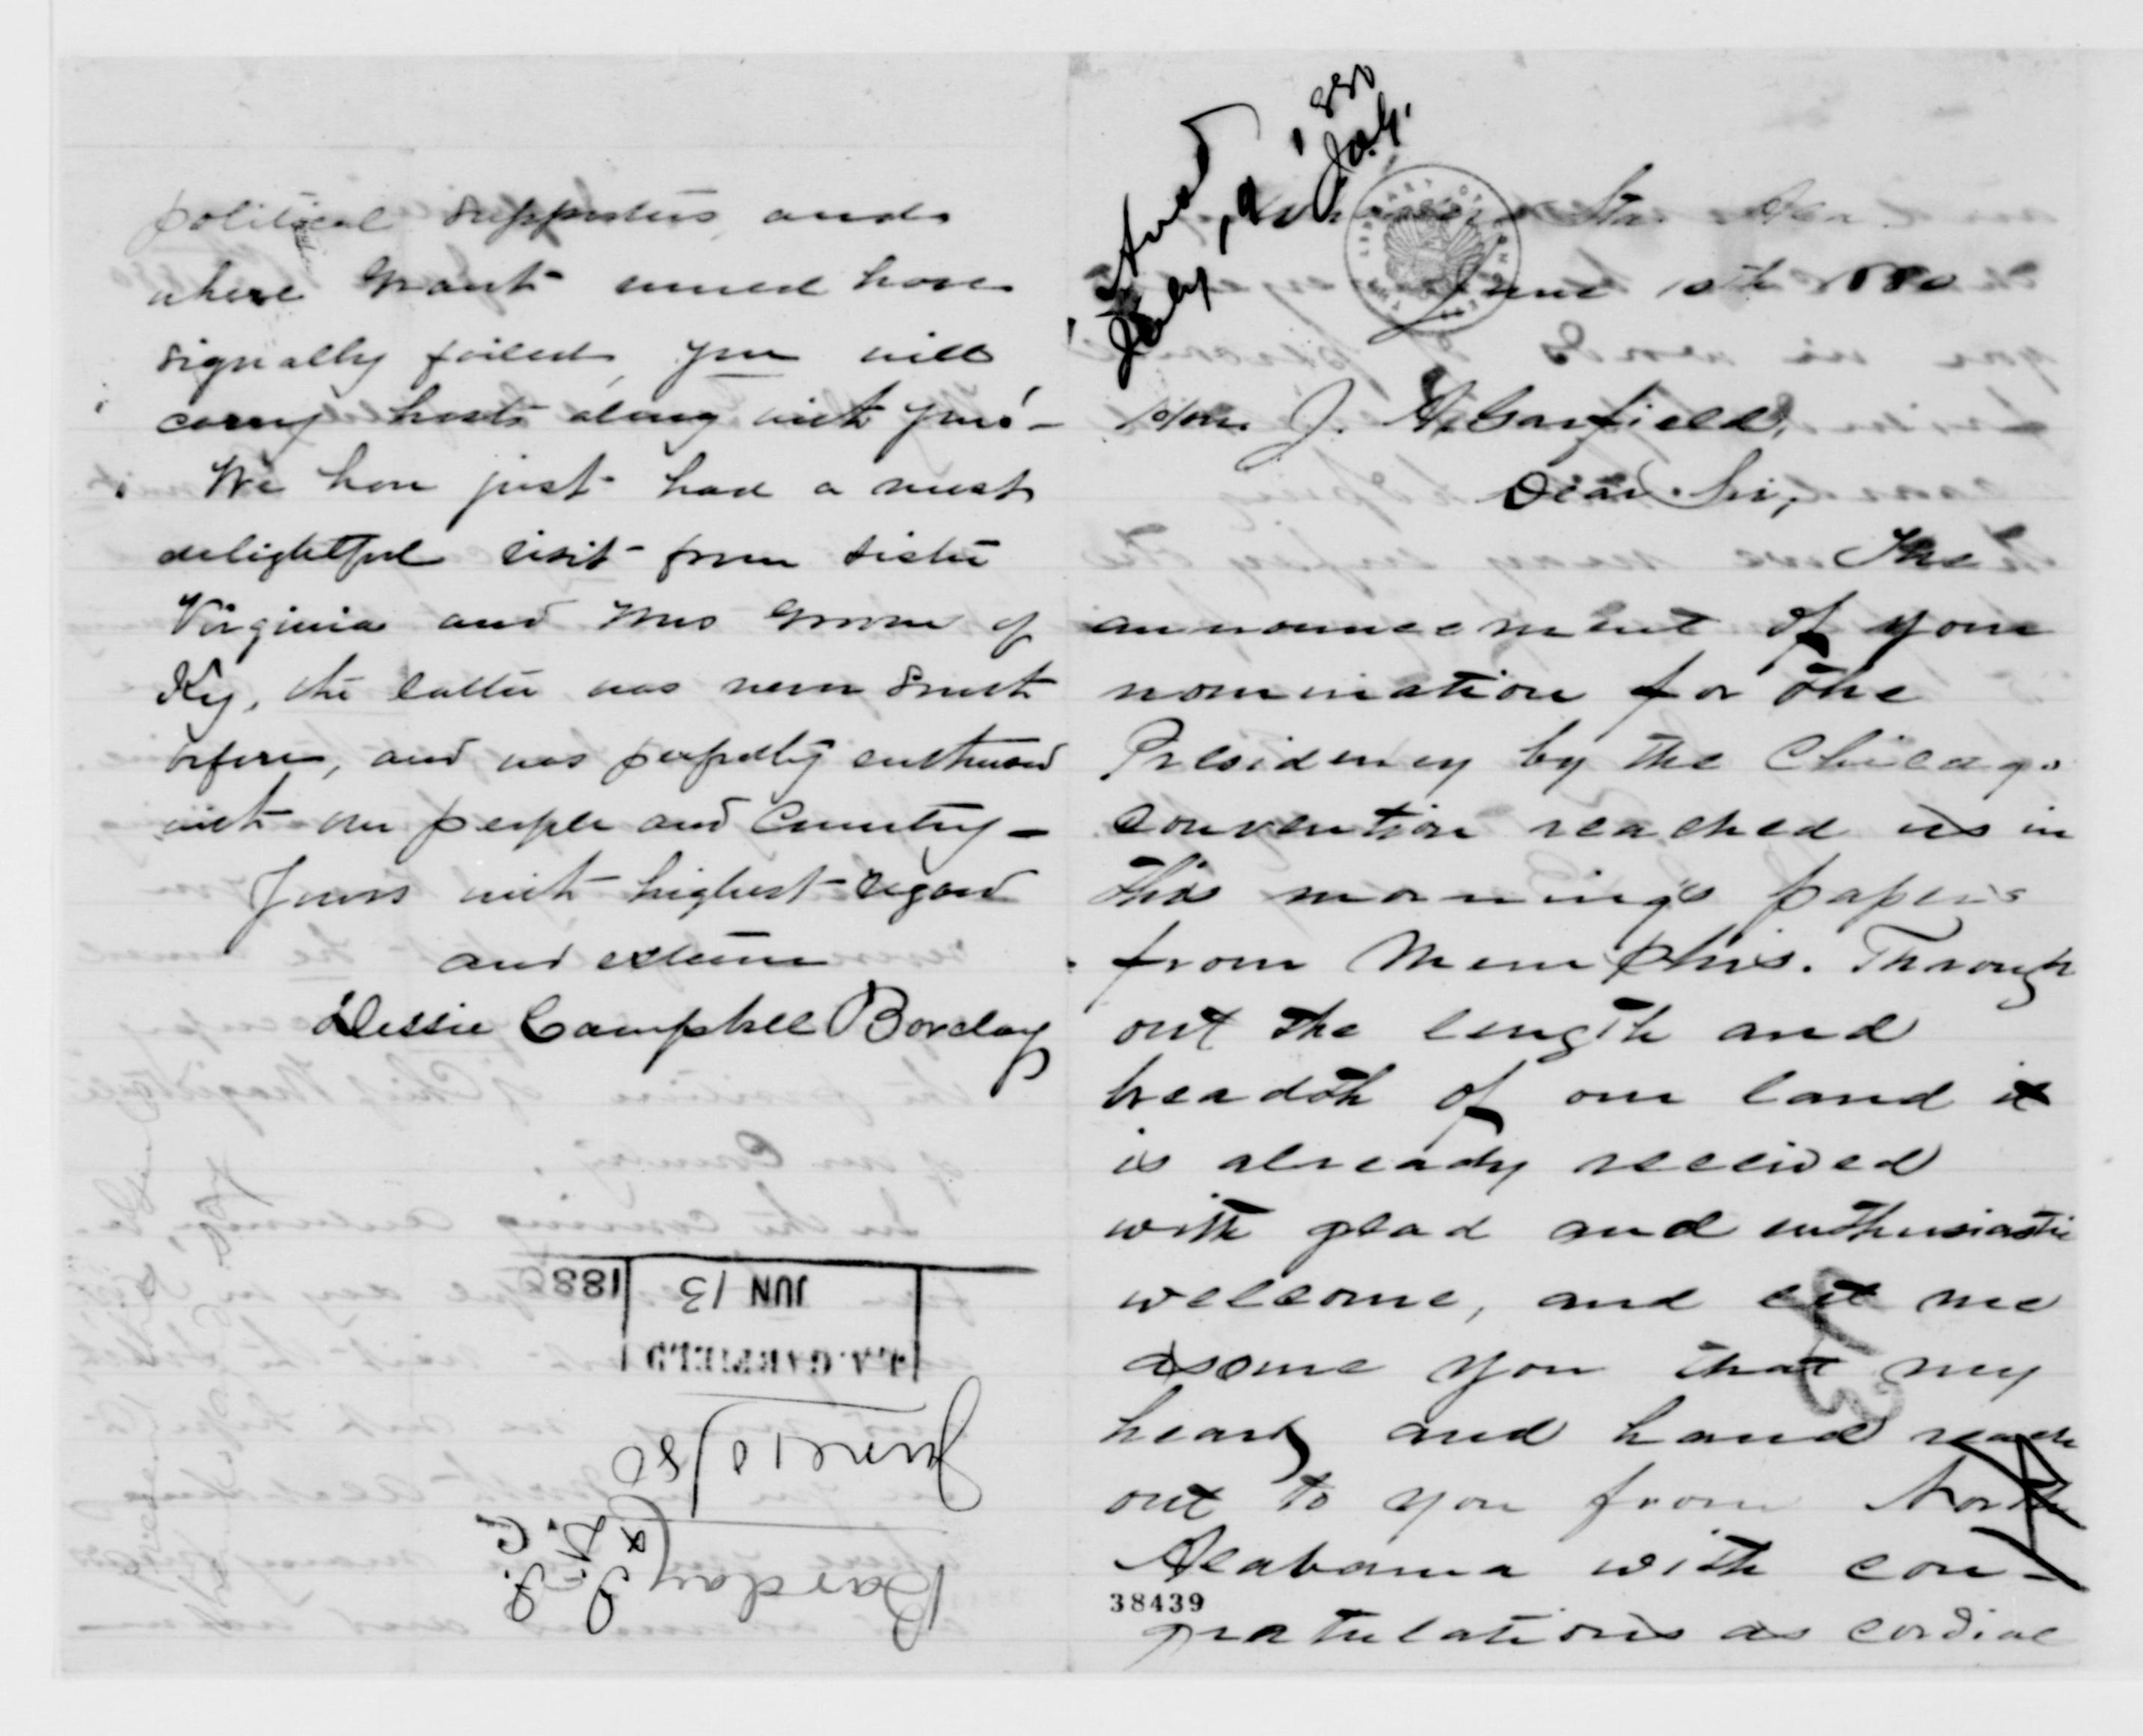 Ansd
July 9, 1880
J.A.G.
Sta. Ala.
June 10th 1880
Hon. J. A. Garfield,
Dear Sir,
The
announcement of your
nomination for the
Presidency by the Chicago
convention reached us in
this morning's papers
from Memphis. Through
out the length and
breadth of our land it
is already received
with glad and enthusiastic
welcome, and let me
assure you that my
heart and hand reach
out to you from North
Alabama with con-
38439
gratulations as cordial
political supporters, and
where Grant would have
signally failed, you will
carry hosts along with you! -
We have just had a most
delightful visit from sister
Virginia and Mrs Groom of
Ky, the latter was never South
before, and was perfectly enthused
with our people and Country -
Yours with highest regard
and esteem
Dessie Campbell Barclay
JUN 13 1880
J.A. GARFIELD
June 10/80
Barclay